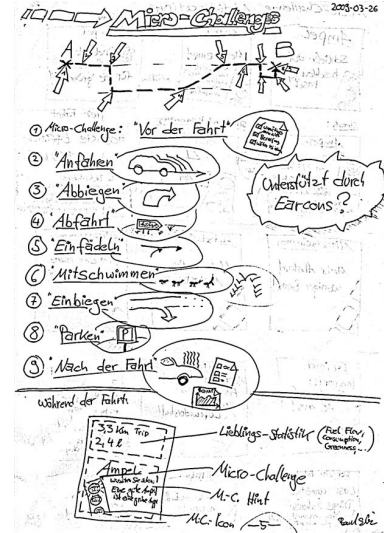 2009-03-26
Micro-Challenges
A
B
① Micro-Challenge: "Vor der Fahrt"
② "Anfahren"
③ "Abbiegen"
④ "Abfahrt"
⑤ "Einfädeln"
⑥ "Mitschwimmen"
⑦ "Einbiegen"
⑧ "Parken" P
⑨ "Nach der Fahrt"
Unterstützt durch
Earcons?
Während der Fahrt:
3,3 km Trip
2,4 l
Lieblings-Statistik (Fuel Flow,
Consumption,
Greenness...)
Ampel
Micro-Challenge
Wussten Sie schon:
Eine gute Ampel
ist eine grüne
M.C. Hint
M.C.-Icon
-5-